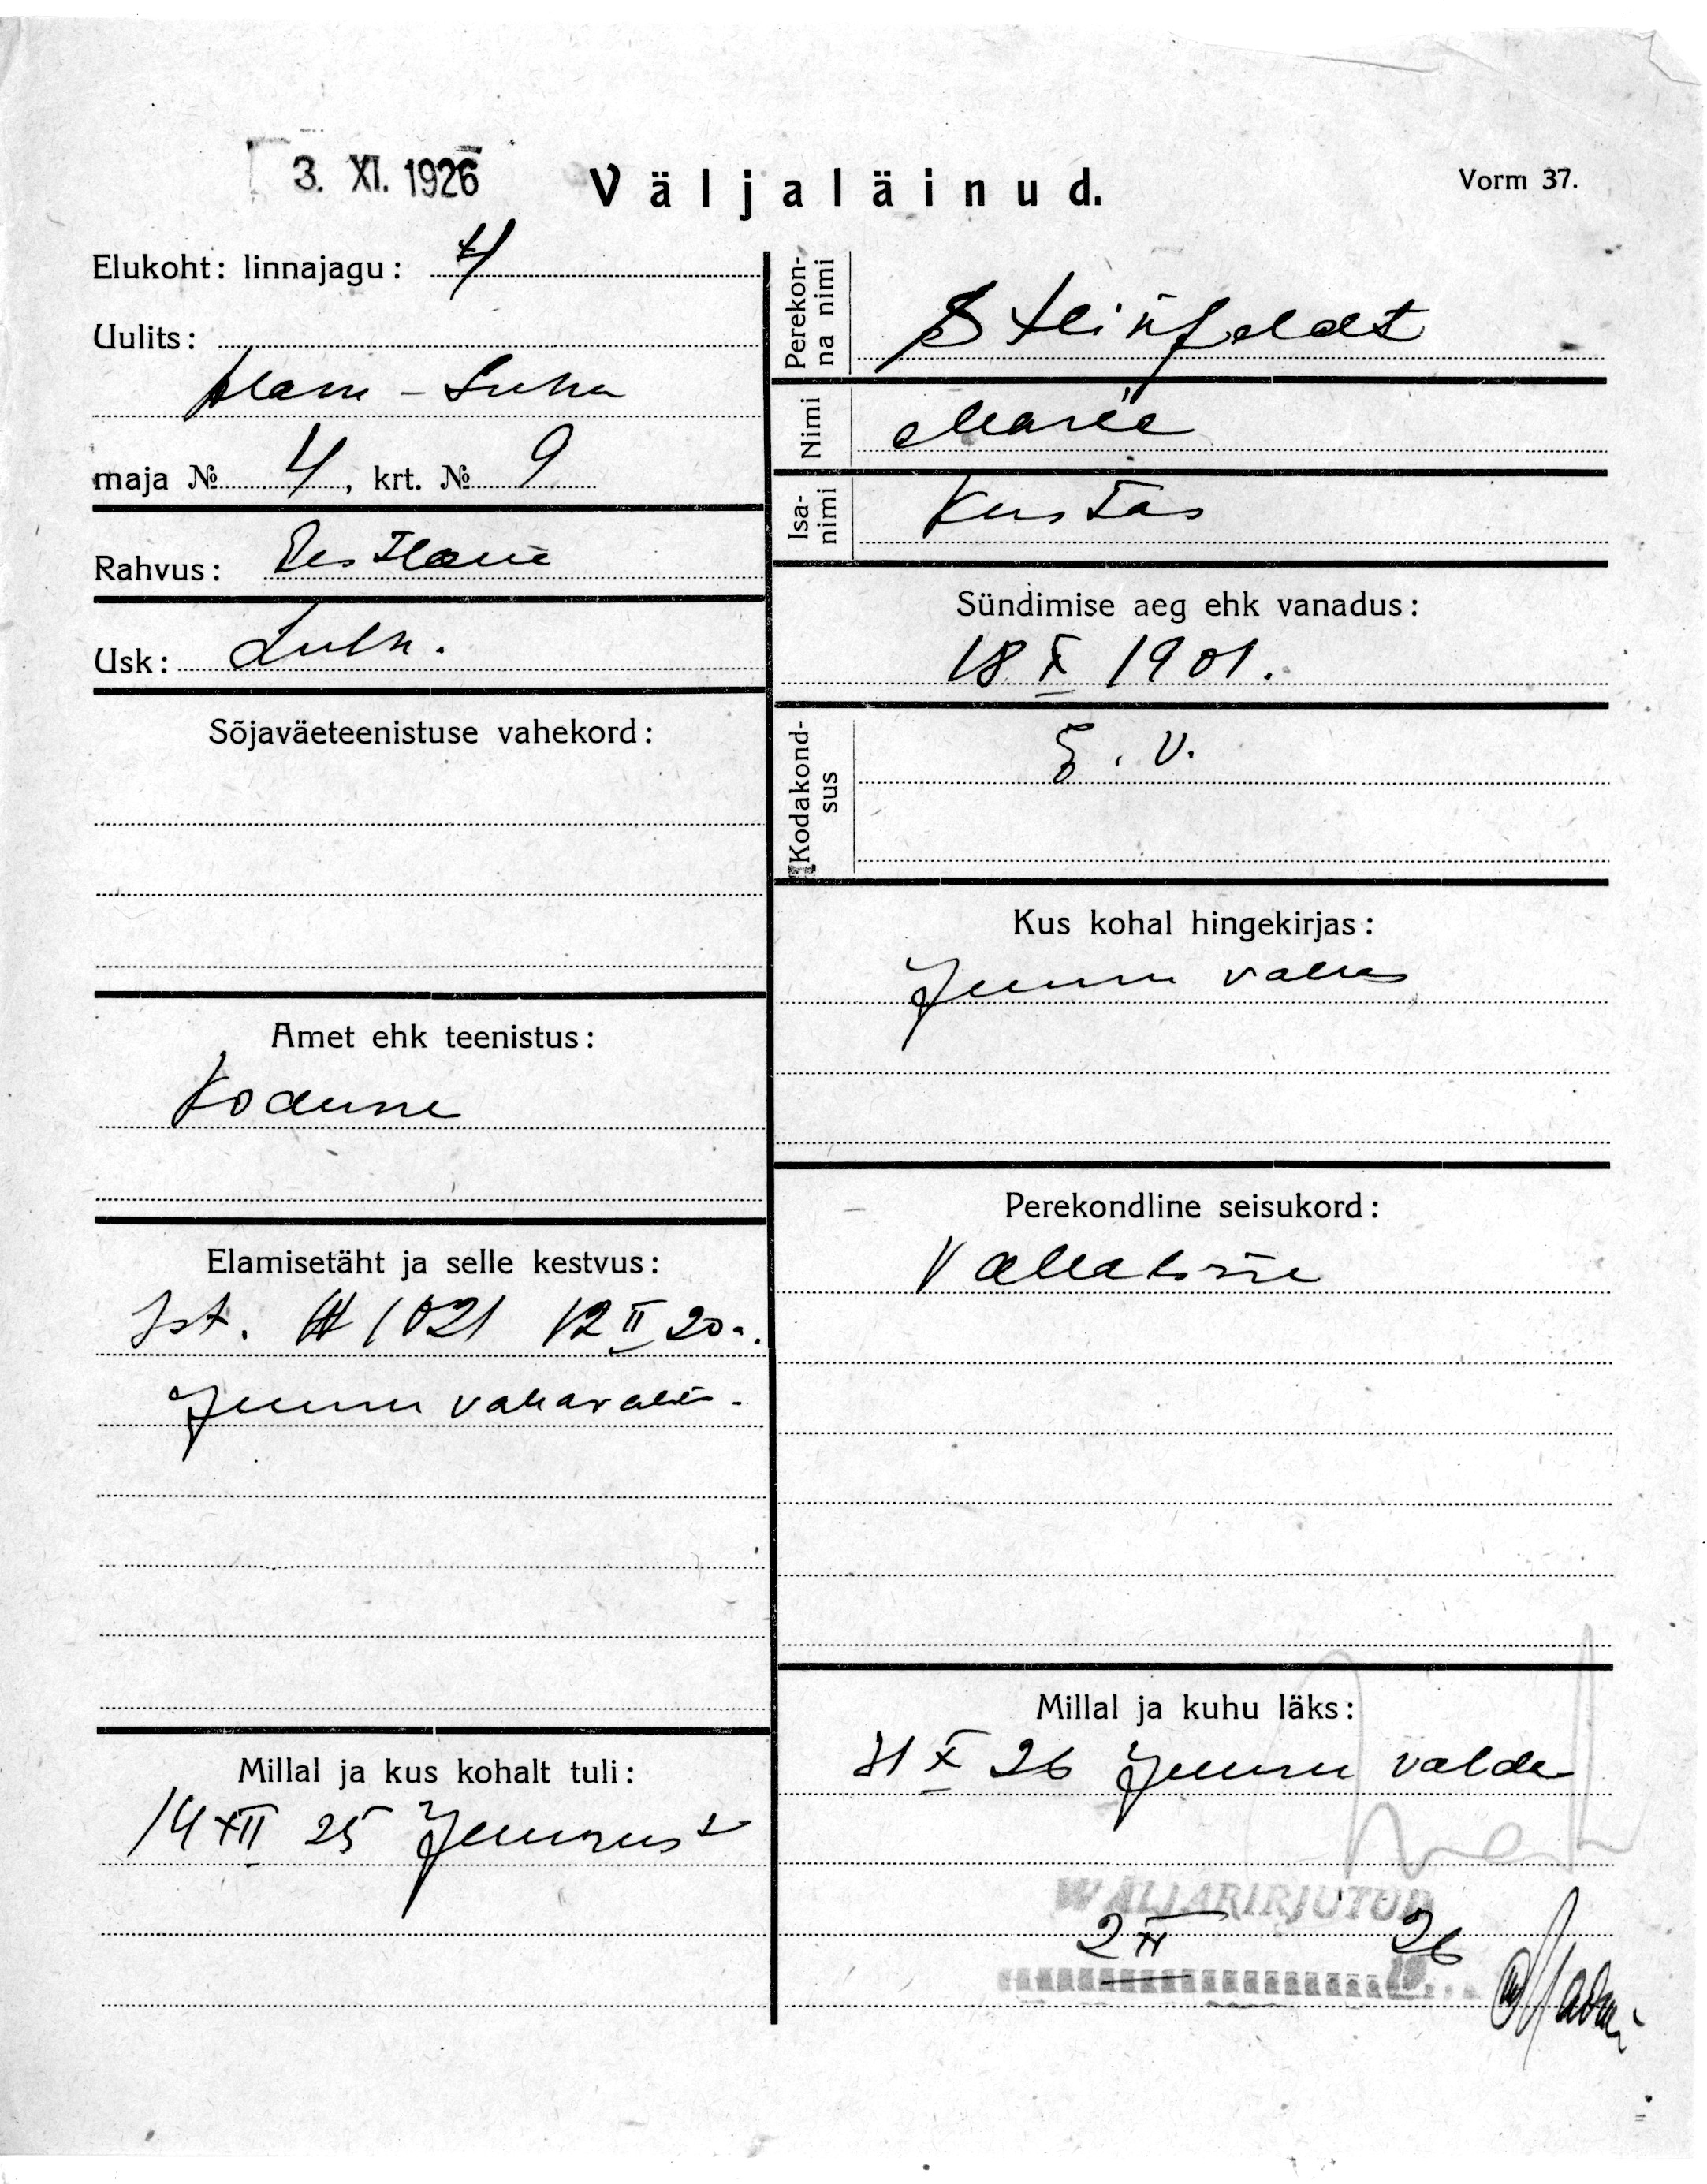 3. XI. 1926
Väljaläinud.
Vorm 37.
Elukoht: linnajagu: 4
Uulits:
Alam - Juhu
maja № 4, krt. № 9
Rahvus: Eestlane
Usk: Luth.
Sõjaväeteenistuse vahekord:
Amet ehk teenistus:
Kodune
Elamisetäht ja selle kestvus:
Ist. № 1021 12 II 20 a.
Juuru vallaval.
Millal ja kus kohalt tuli:
14 XII 25 Juurust
Perekonna nimi
Steinfeldt
Nimi
Marie
Isanimi
Kustas
Sündimise aeg ehk vanadus:
18 X 1901.
Kodakondsus
E. V.
Kus kohal hingekirjas:
Juuru vallas
Perekondline seisukord:
Vallaline
Millal ja kuhu läks:
31 X 26 Juuru valda
WÄLJAKIRJUTUD
2 XI 26
19